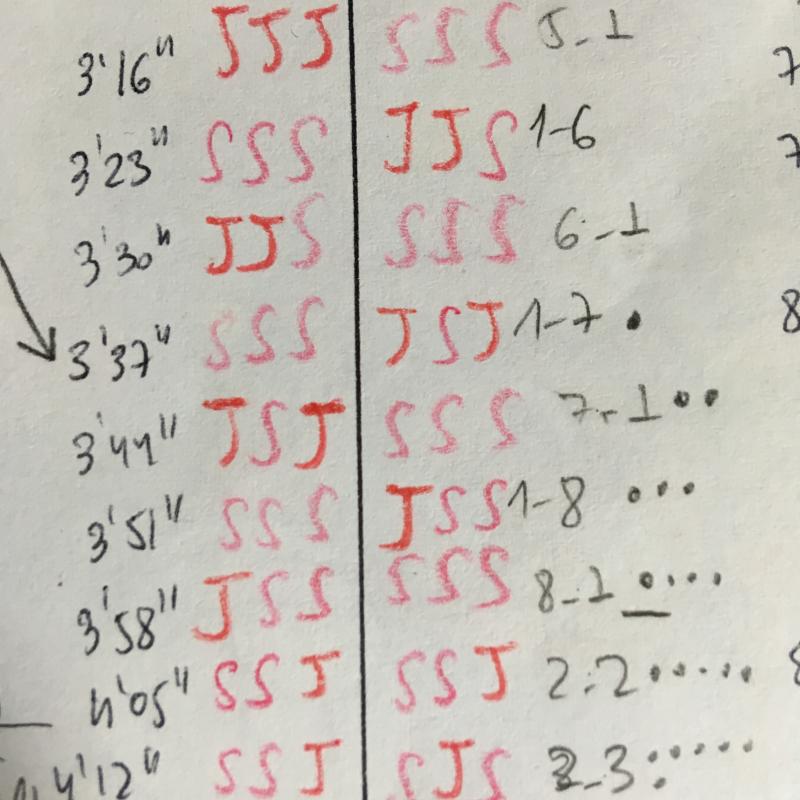 3'16" JJJ SSS 5-1
3'23" SSS JJS 1-6
3'30" JJS SSS 6-1
3'37" SSS JSJ 1-7 •
3'44" JSJ SSS 7-1 ••
3'51" SSS JSS 1-8 •••
3'58" JSS SSS 8-1 ••••
4'05" SSJ SSJ 2-2 •••••
4'12" SSJ SJS 2-3